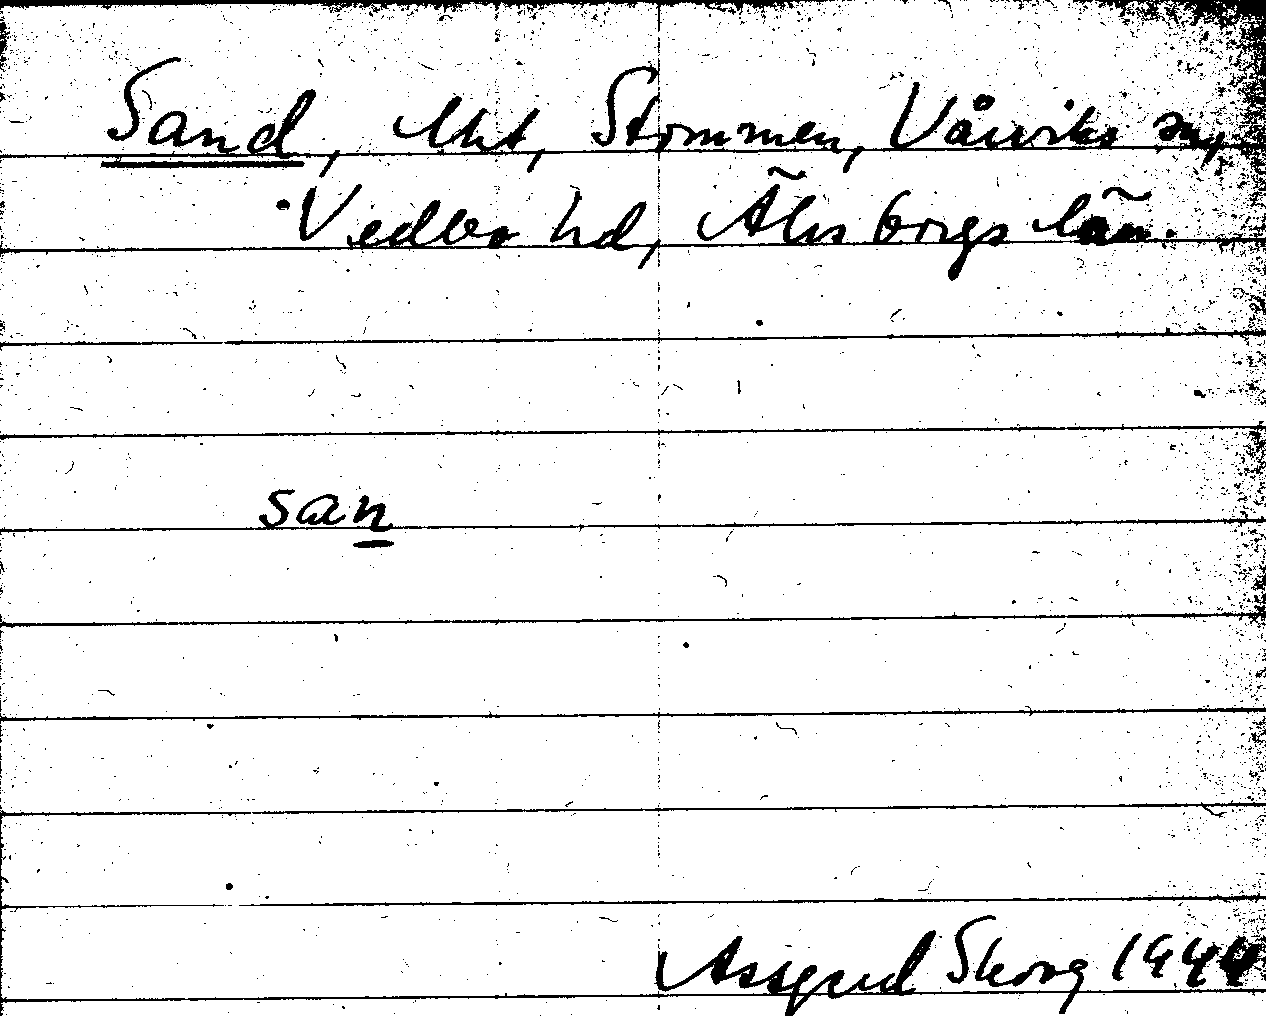 Sand, lht, Stommen, Vårviks sn,
Vedbo hd, Älvsborgs län.
san
Assgerd Skorg 1944